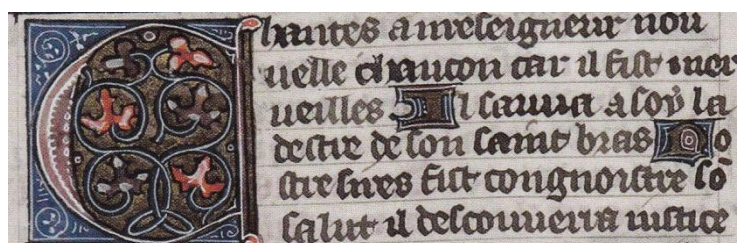 Chantes a nreseigneur nou
uelle chancon car il fist mer
ueilles Il sauua a soy la
destre de son saint bras No
stre sires fist congnoistre sō
salut il descouuerra iustice